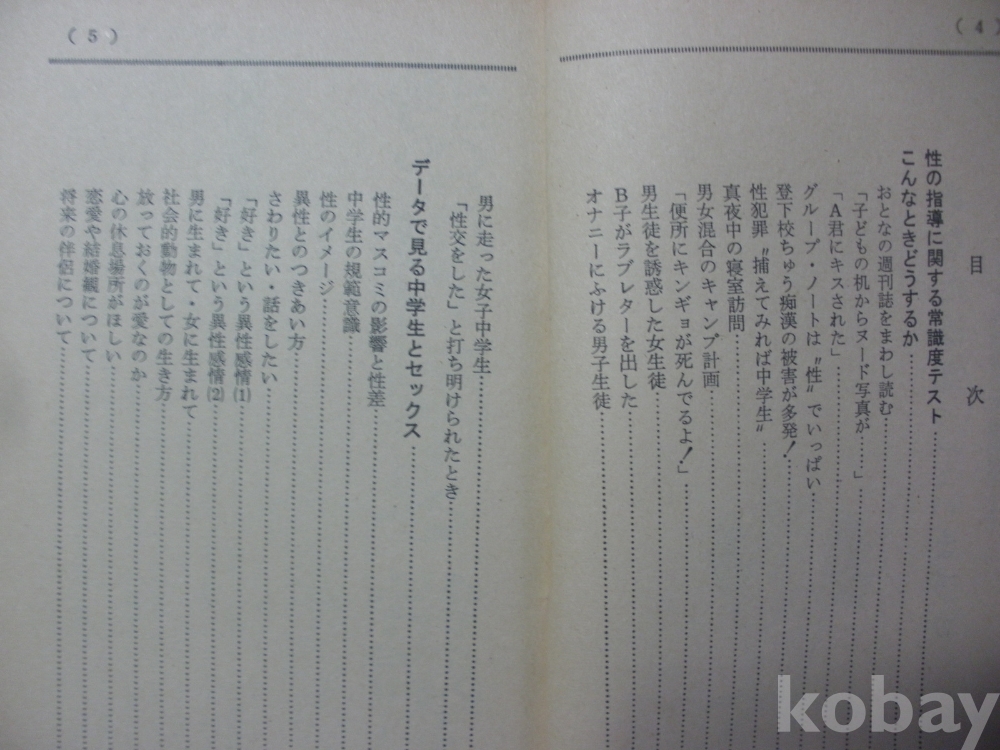 (4)
目次
性の指導に関する常識度テスト
こんなときどうするか
おとなの週刊誌をまわし読む
「子どもの机からヌード写真が……」
「A君にキスされた」
グループ・ノートは〝性〟でいっぱい
登下校ちゅう痴漢の被害が多発!
性犯罪〝捕えてみれば中学生〟
真夜中の寝室訪問
男女混合のキャンプ計画
「便所にキンギョが死んでるよ!」
男生徒を誘惑した女生徒
B子がラブレターを出した
オナニーにふける男子生徒
(5)
男に走った女子中学生
「性交をした」と打ち明けられたとき
データで見る中学生とセックス
性的マスコミの影響と性差
中学生の規範意識
性のイメージ
異性とのつきあい方
さわりたい・話をしたい
「好き」という異性感情(1)
「好き」という異性感情(2)
男に生まれて・女に生まれて
社会的動物としての生き方
放っておくのが愛なのか
心の休息場所がほしい
恋愛や結婚観について
将来の伴侶について
kobay